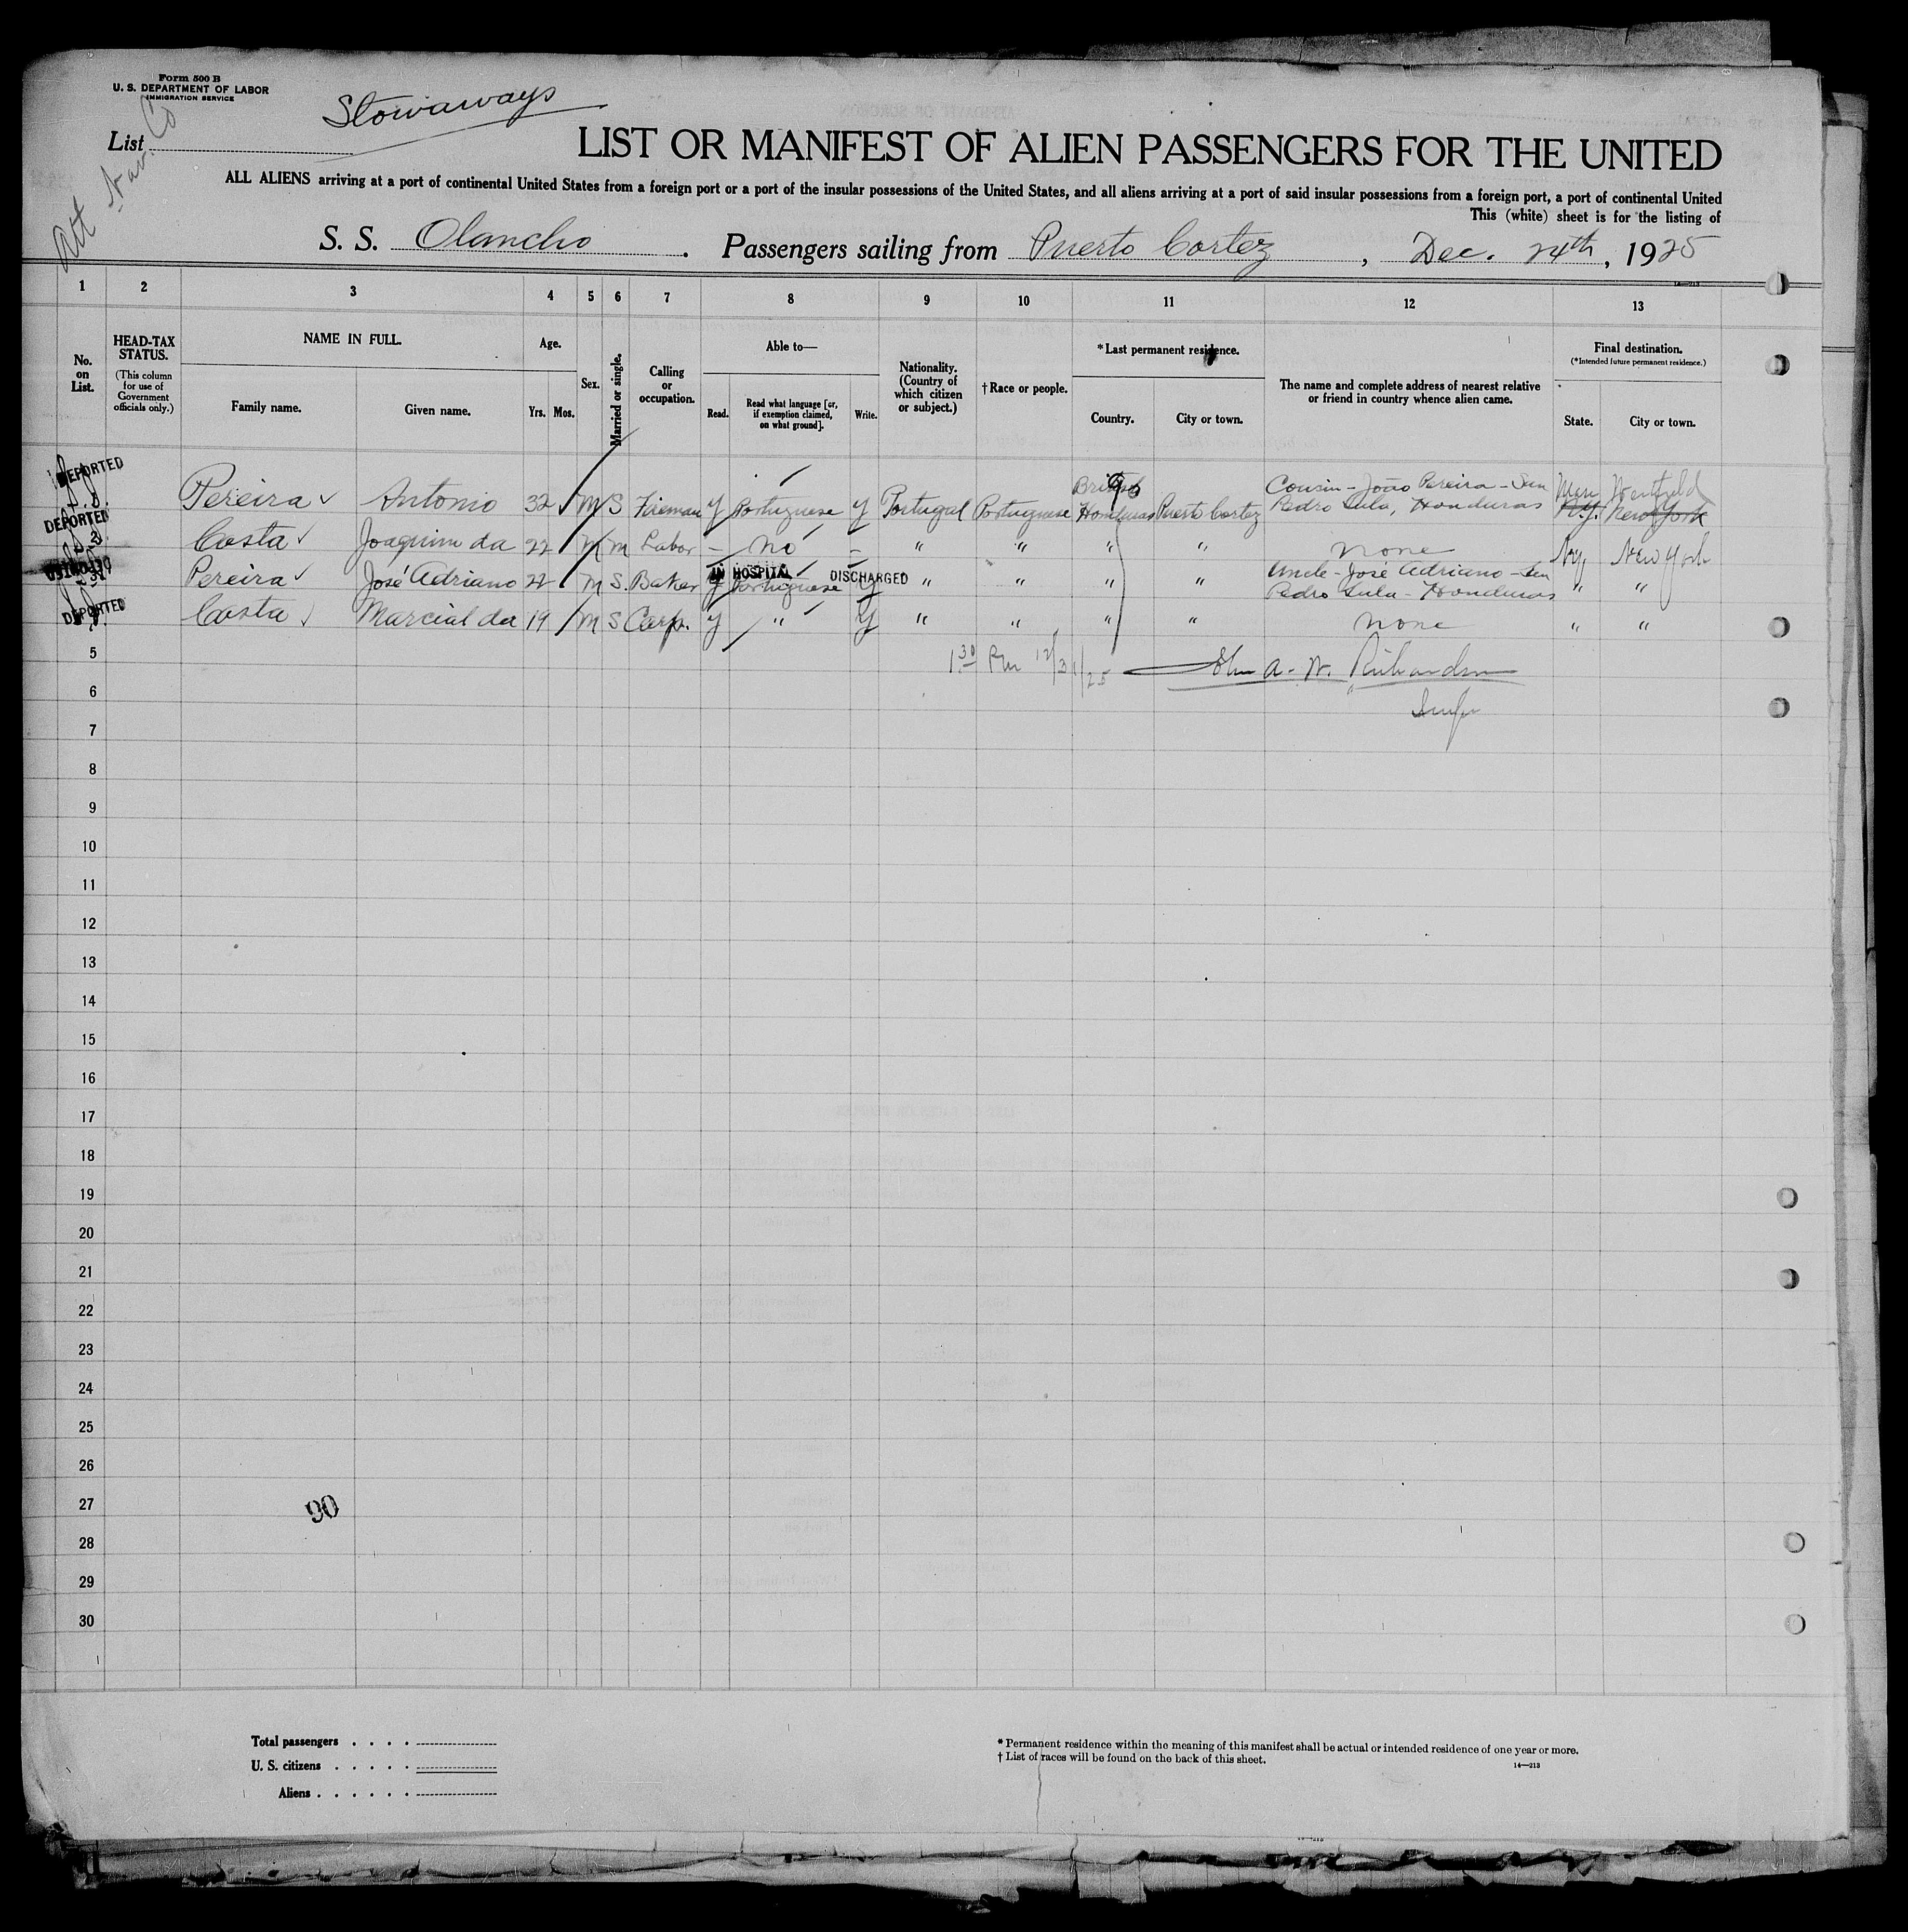 Form 500 B
U. S. DEPARTMENT OF LABOR
IMMIGRATION SERVICE
Stowaways
List
Att Nav. Co
LIST OR MANIFEST OF ALIEN PASSENGERS FOR THE UNITED
ALL ALIENS arriving at a port of continental United States from a foreign port or a port of the insular possessions of the United States, and all aliens arriving at a port of said insular possessions from a foreign port, a port of continental United
This (white) sheet is for the listing of
S. S. Olancho . Passengers sailing from Puerto Cortez , Dec. 24th , 1925
14—213
1 2 3 4 5 6 7 8 9 10 11 12 13
No. on List.
HEAD-TAX STATUS.
(This column for use of Government officials only.)
NAME IN FULL.
Family name. Given name.
Age.
Yrs. Mos.
Sex.
Married or single.
Calling or occupation.
Able to—
Read. Read what language [or, if exemption claimed, on what ground]. Write.
Nationality. (Country of which citizen or subject.)
†Race or people.
*Last permanent residence.
Country. City or town.
The name and complete address of nearest relative or friend in country whence alien came.
Final destination.
(*Intended future permanent residence.)
State. City or town.
DEPORTED Pereira Antonio 32 M S Fireman y Portuguese y Portugal Portuguese British Honduras Puerto Cortez Cousin - João Pereira - San Pedro Sula, Honduras N.Y. New York
96
DEPORTED Costa Joaquim da 22 M M Labor - No - " " " " None Ny New York
DEPORTED Pereira José Adriano 22 M S. Baker y Portuguese y " " " " Uncle - José Adriano - San Pedro Sula - Honduras " "
IN HOSPITAL DISCHARGED
DEPORTED Costa Marcial da 19 M S Carp. y " y " " " " None " "
1 30 Pm 12/31/25 John A. W. Richardson
5
6
7
8
9
10
11
12
13
14
15
16
17
18
19
20
21
22
23
24
25
26
27
90
28
29
30
Total passengers
U. S. citizens
Aliens
* Permanent residence within the meaning of this manifest shall be actual or intended residence of one year or more.
† List of races will be found on the back of this sheet.
14—213